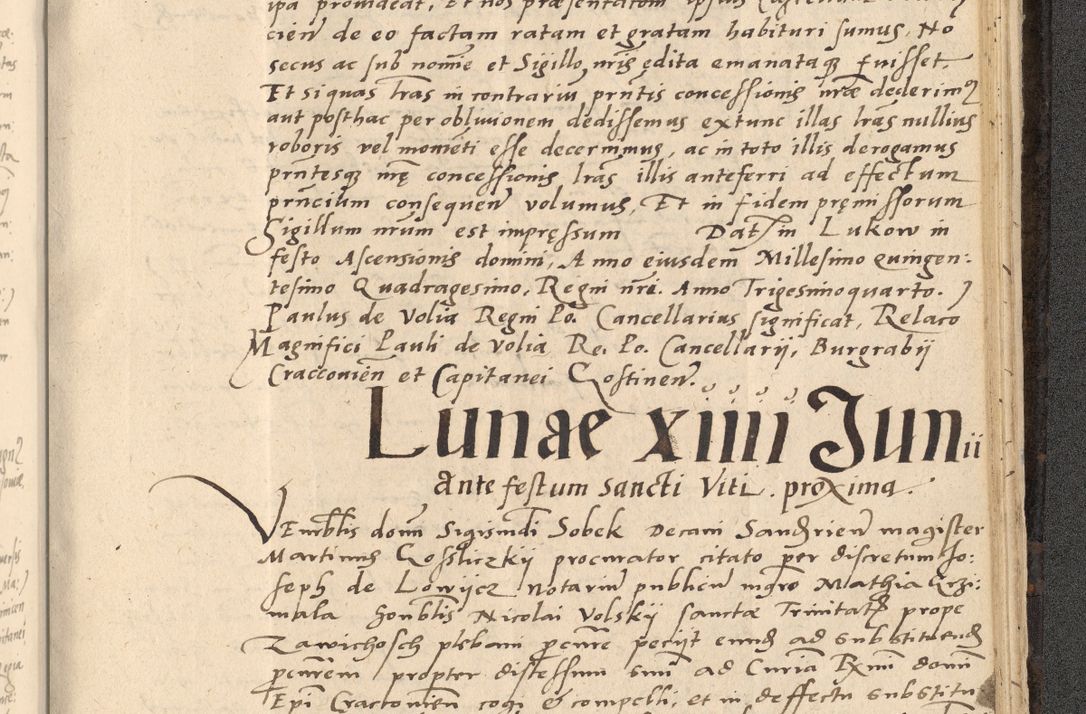 ipa provideat, Et nos præsentatam ipsius
cień de eo factam ratam et gratam habituri sumus, No
secus ac sub nomīe et Sigillo nr̄is ędita emanataqȝ fuisset.
Et si quas lr̄as in contrariū pr̄ntis concessionis nr̄æ dederimꝰ
aut posthac per obliuionem dedissemus extunc illas lr̄as nullius
roboris vel momēti esse decernimus, ac in toto illis derogamus
pr̄ntesqȝ nr̄ę concessionis lr̄as illis anteferri ad effectum
pr̄ncilem consequeń volumus, Et in fidem pręmissorum
Sigillum nr̄um est impręssum Dat in Lukow in
festo Ascensionis domini, Anno eiusdem Millesimo Quingen:
tesimo Quadragesimo, Regni nr̄i. Anno Trigesimoquarto.
Paulus de Volia Regni Po. Cancellarius significat, Relaco
Magnifici Pauli de Volia Re. Po. Cancellarij, Burgrabij
Cracconień et Capitanei Gostineń.
Lunae xiiii Junii
Ante festum sancti Viti. proxima.
VEnerbłis domī Sigismūdi Sobek Decani Sandrień magister
Martinus Gosliczkij procurator citato per discretum Jo:
seph de Lowijcz notariū publicū mgro Mathia Grzi:
mala honbłis Nicolai Volskij sanctæ Trinitatꝭ prope
Zawichosch plebani pcure petijt eund ad substituend
pcurem propter distessum sui ad Curiā Rmi domī
Epi Cracconień cogi et compelli, et in deffectu substitu